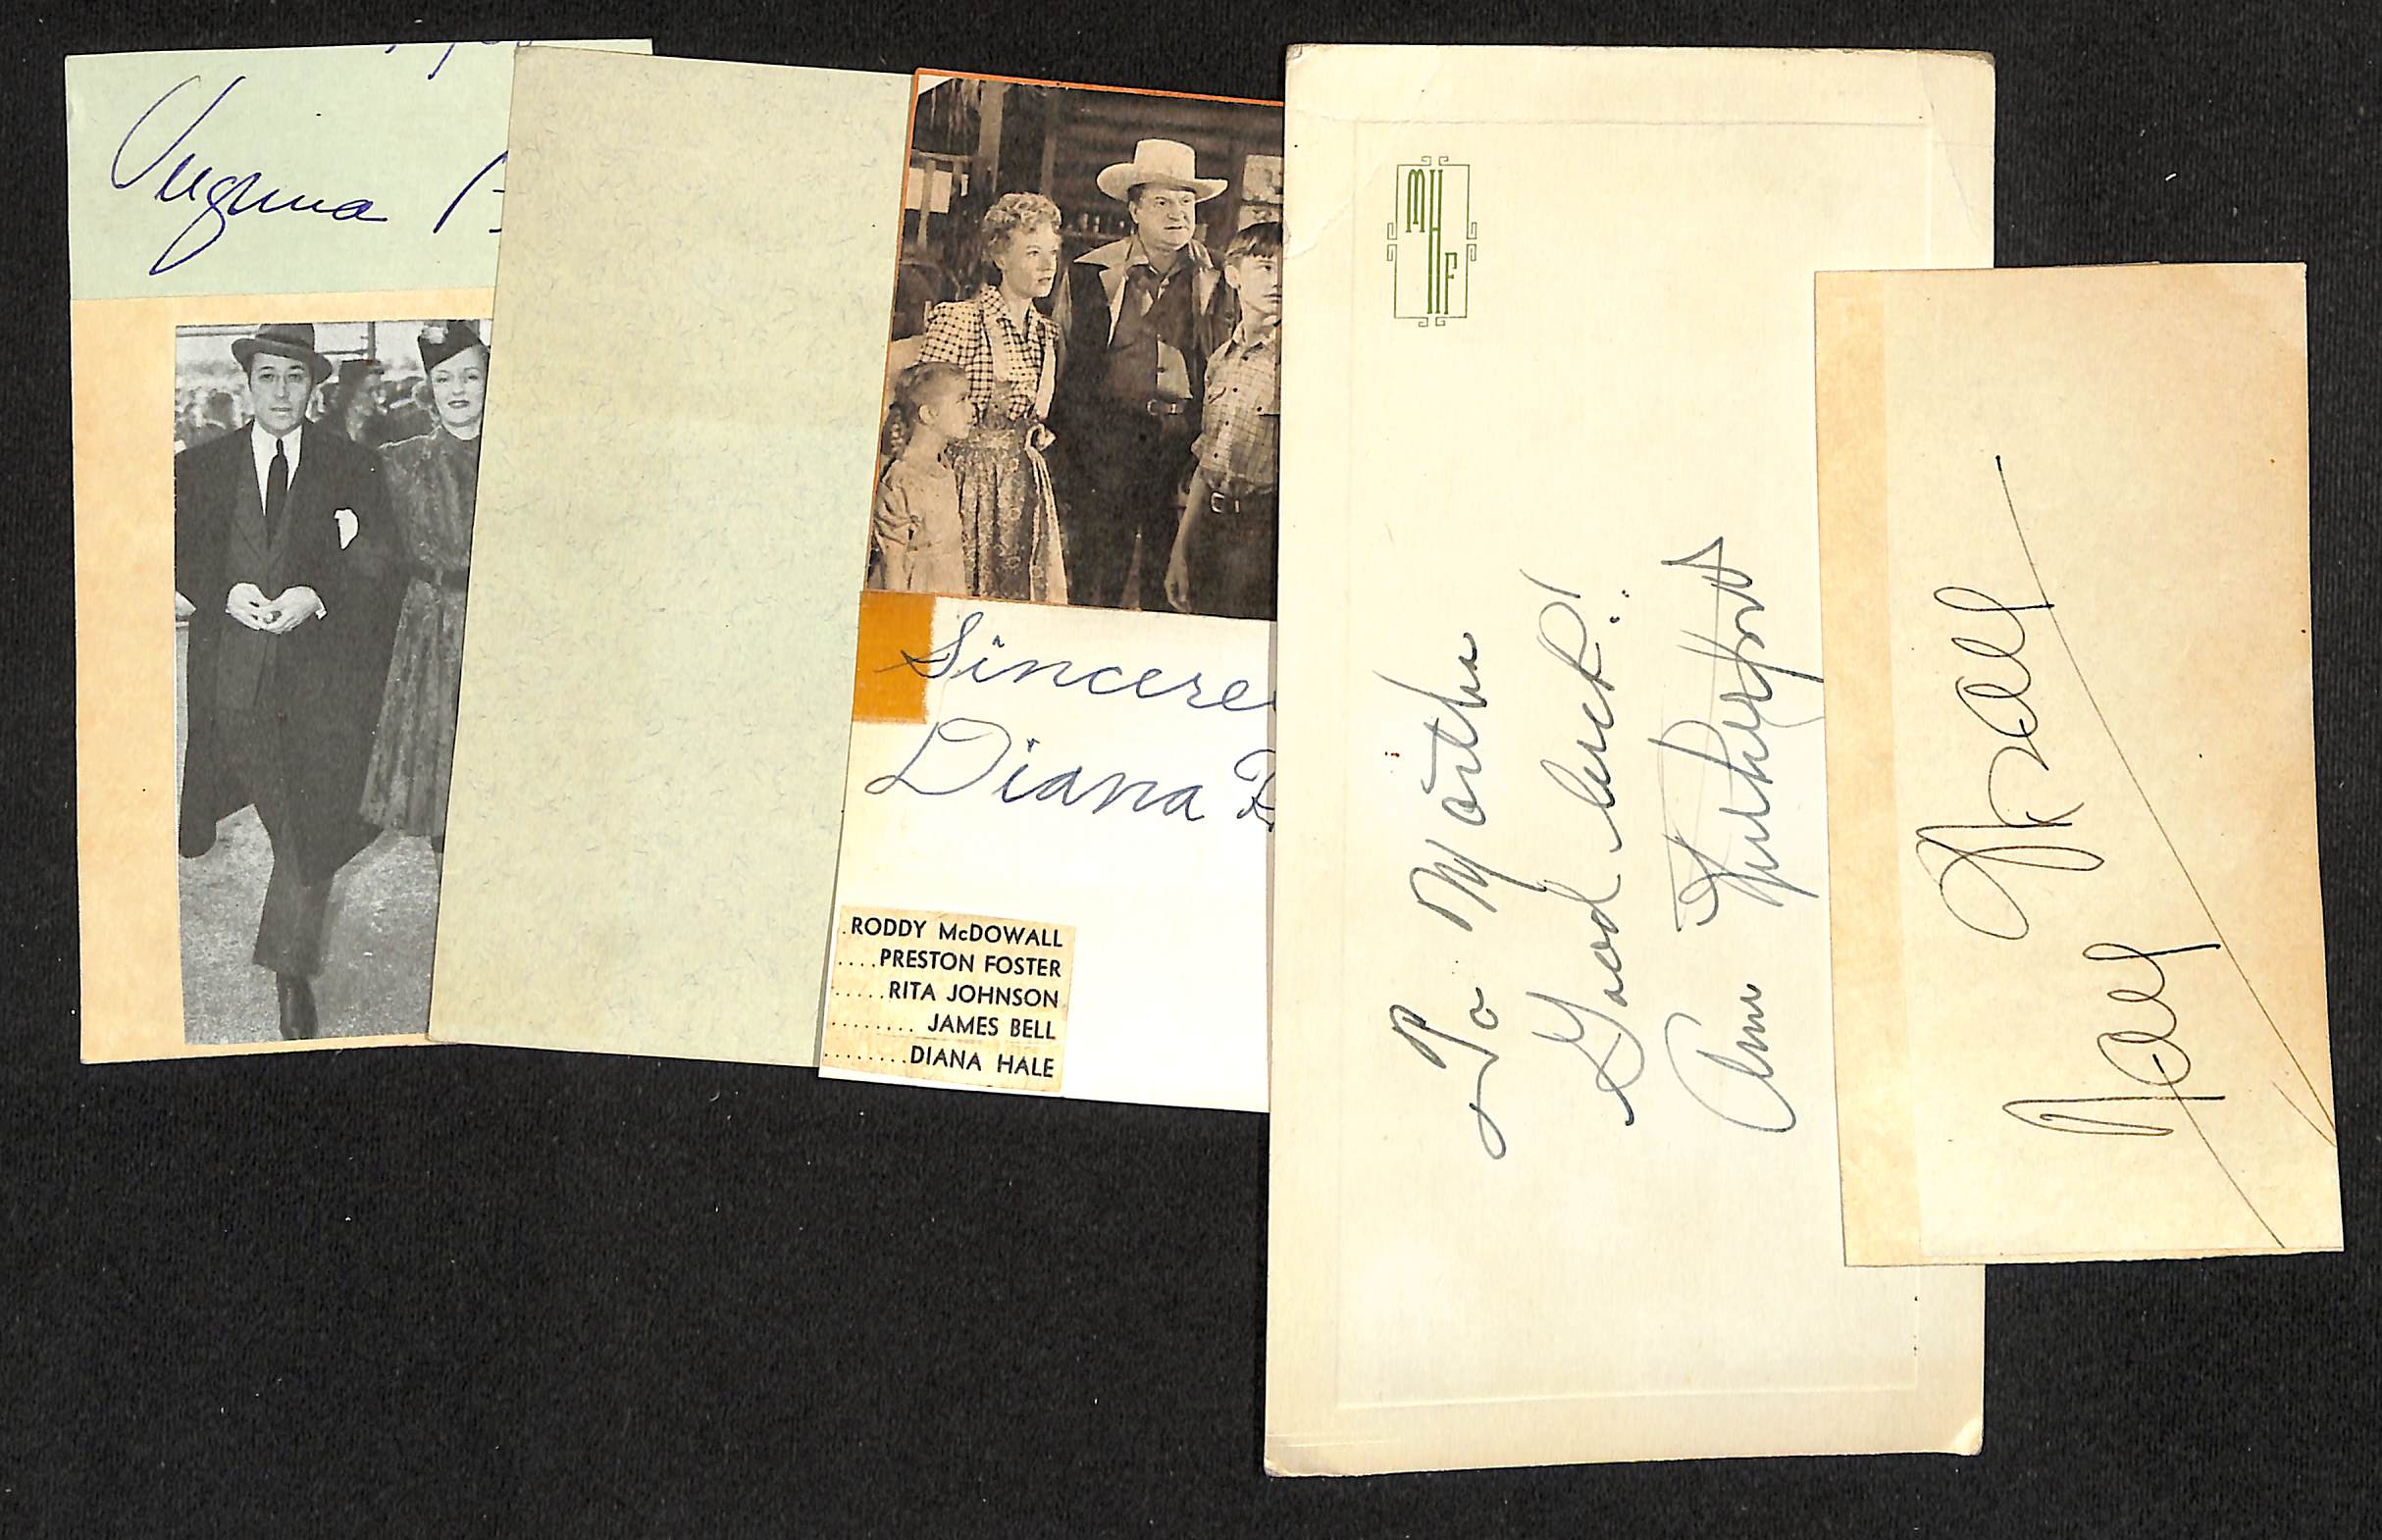 Virginia
Sincere
Diana
.RODDY McDOWALL
....PRESTON FOSTER
.....RITA JOHNSON
........ JAMES BELL
........DIANA HALE
MHF
To Martha
Good luck!
Ann Rutherford